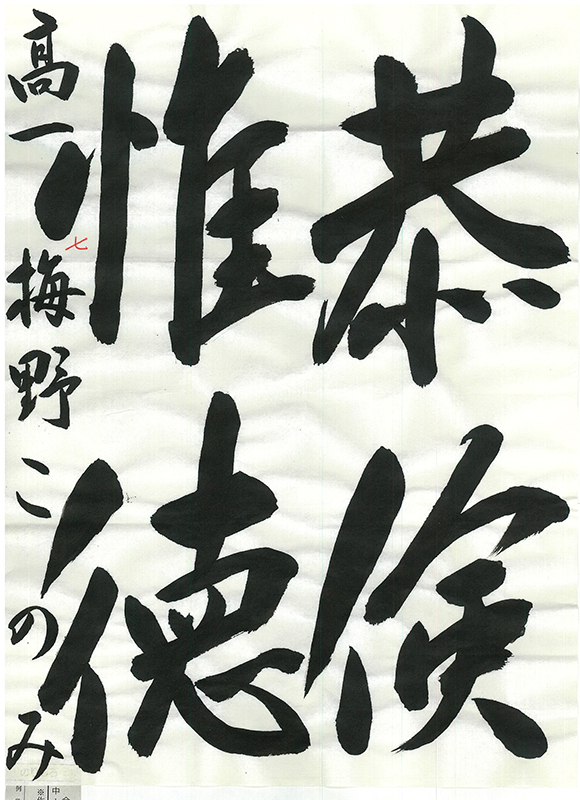 恭倹
惟徳
高一 梅野このみ
七